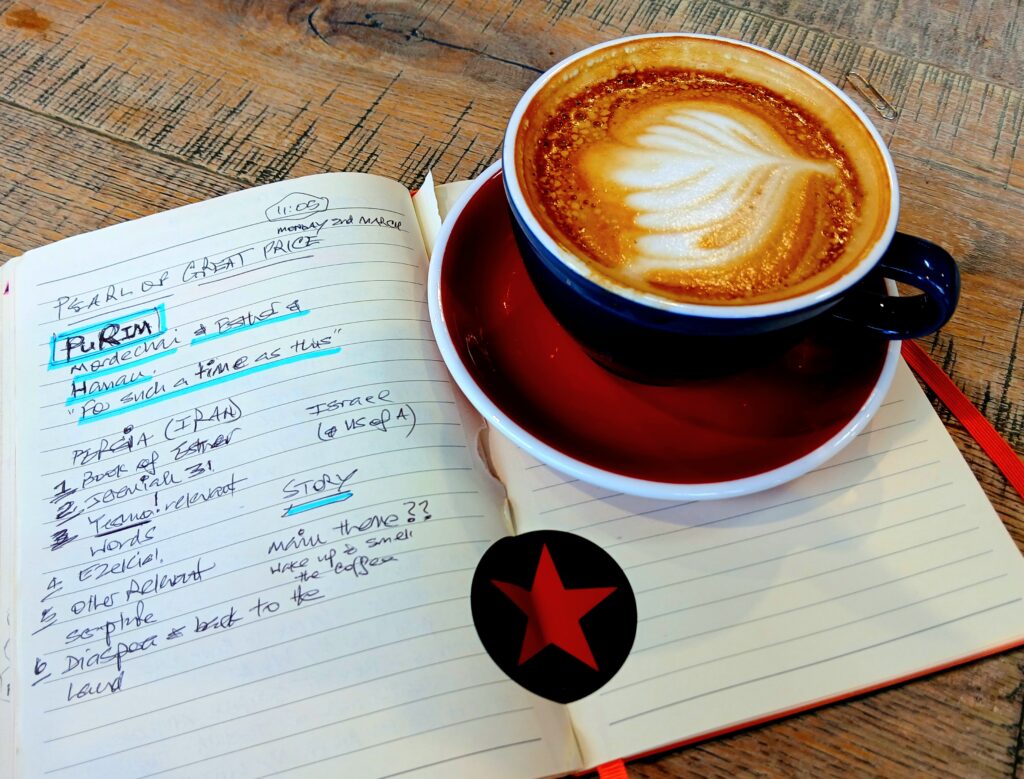 11:05
MONDAY 2nd MARCH
PEARL OF GREAT PRICE
PURIM
Mordechai & Esther &
Haman.
"For such a time as this"
PERSIA (IRAN)
1 Book of Esther
2 Jeremiah 31
3 relevant
words
4 Ezekiel
5 other Relevant
scripture
6 Diaspora & back to the
Land
Israel
(& US of A)
STORY
main theme??
wake up & smell
the coffee